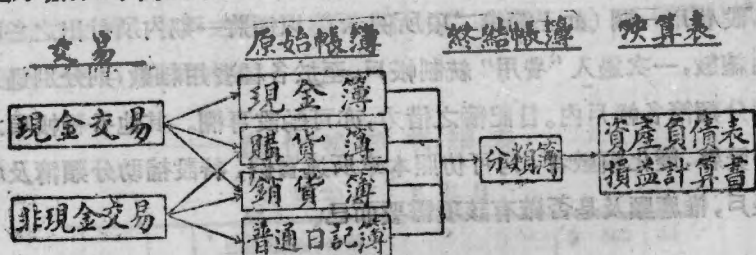 交易 原始帳簿 終結帳簿 决算表
現金交易
非現金交易
現金簿
購貨簿
銷貨簿
普通日記簿
分類簿
資產負債表
損益計算書